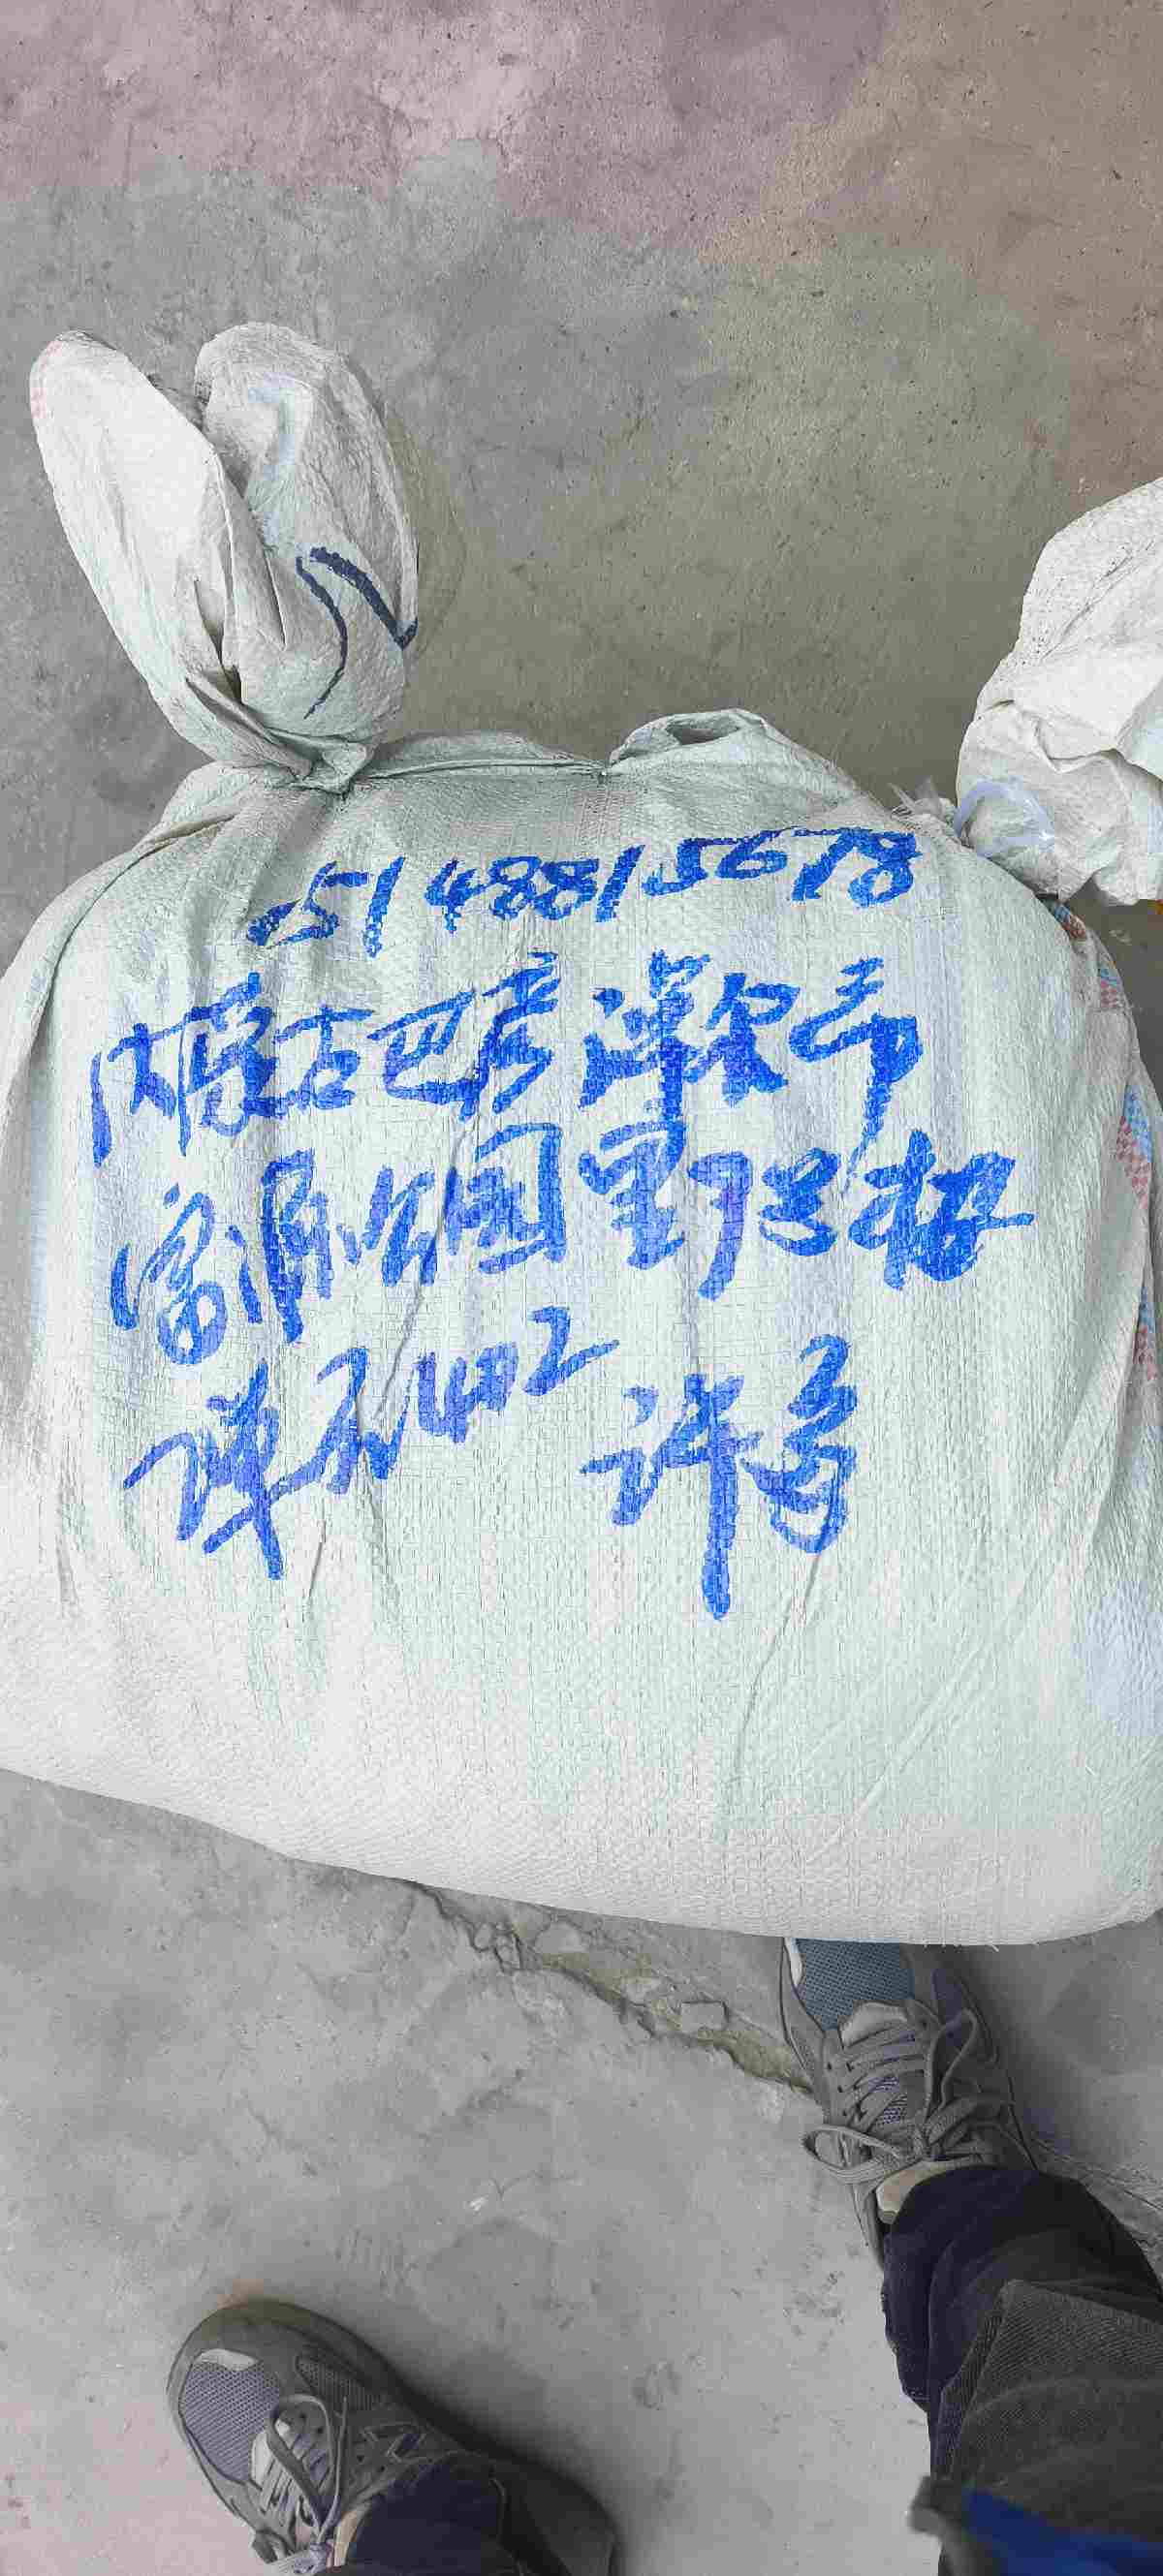 15148815678
内蒙古巴彦淖尔市
富源公园里73号楼
课元1402 许多